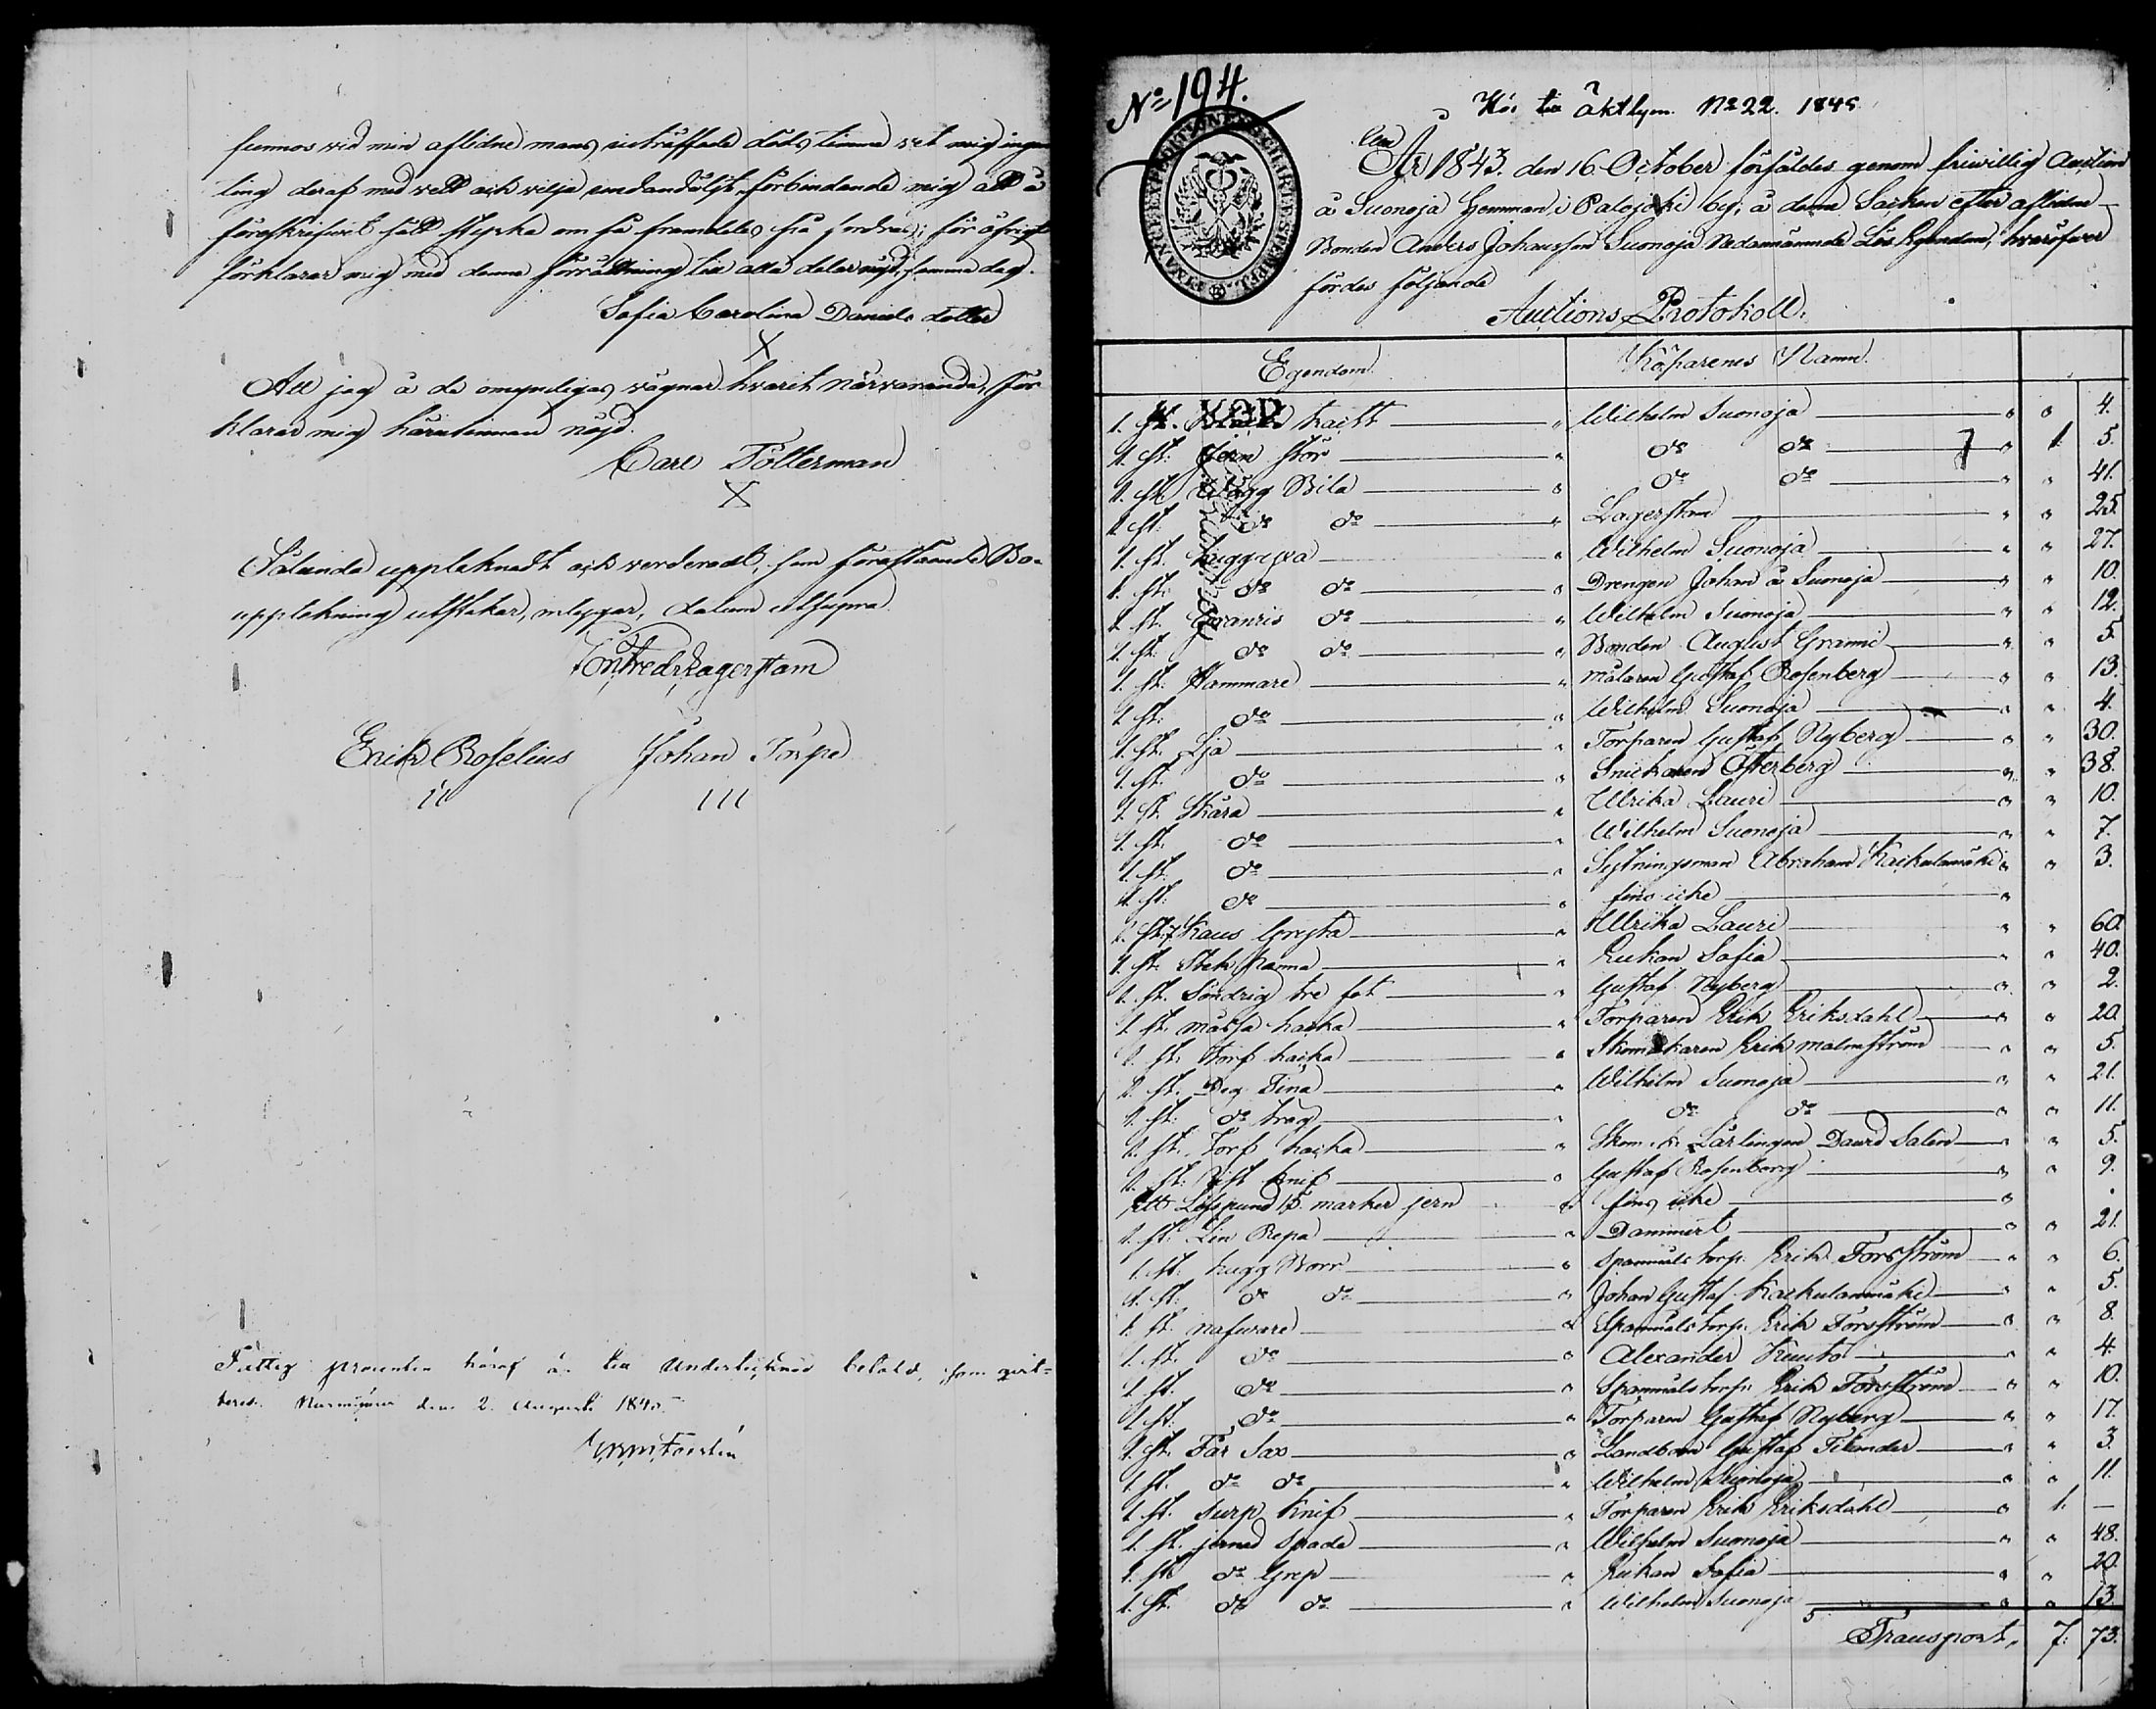 funnos vid min aflidne mans inträffade döds timma vet mig ingen
ting deraf med vett och vilja undandöljt, förbindande mig att å
föreskrifvet sätt styrka om så framdeles fordras; för öfrigt
förklarar mig med denna förrättning till alla delar nöjd, samma dag.
Sofia Carolina Daniels dotter
X
Att jag å de omyndigas vägnar hvarit närvarande, för
klarar mig härutinnan nöjd.
Carl Tötterman
X
Sålunda uppteknadt och verderadt, som föreståande Bo-
uppteckning utstakar, intygar, datum utsupra
Fredr Lagerstam
Erik Roselius Johan Torpe
III
Futtig procenten häraf är till Undertecknad betald, som qvit-
teres. Nurmijärvi den 2. Augusti 1845.
No 194.
Hör till Akt lym. No 22. 1845
FINANCE EXPEDITIONENS CHARTÆ STEMPEL
År 1843. den 16 October försåldes genom friwillig Auction
å Suonoja Hemman i Palojoki by, å denna Socken efter aflidne
Bonden Anders Johansson Suonoja Nedannämnde Lös Egendom, hvaröfwer
fördes följande
Auctions Protokoll.
Egendom. Köparenes Namn.
1. st. hacke Wilhelm Suonoja " " 4.
1. st. Jern stör " do do " 1. 5.
1. st. Bila " do do " " 41.
1. st. do do " Lagerstam " " 25.
1. st. huggyxa " Wilhelm Suonoja " " 27.
1. st. do do " Drengen Johan å Suonoja " " 10.
1. st. Granris do " Wilhelm Suonoja " " 12.
1. st. do do " Bonden August Granni " " 5.
1. st. Hammare " målaren Gustaf Rosenberg " " 13.
1. st. do " Wilhelm Suonoja " " 4.
1. st. Lja " Torparen Gustaf Nyberg " " 30.
1. st. do " Snickaren Österberg " " 38.
1. st. Skära " Ullrika Lauri " " 10.
1. st. do " Wilhelm Suonoja " " 7.
1. st. do " Sytningsman Abraham Kaikulamäki " " 3.
1. st. do " fins icke "
1. st. Kaus Gryta " Ullrika Lauri " " 60.
1. st. Stek Panna " Enkan Sofia " " 40.
1. st. Söndrig tre fot " Gustaf Nyberg " " 2.
1. st. måssa hacka " Torparen Erik Eriksdahl " " 20.
1. st. Torf hacka " Skomakaren Erik Malmström " " 5.
1. st. Deg Tina " Wilhelm Suonoja " " 21.
1. st. do tråg " do do " " 11.
1. st. Torf hacka " Skom. Lärlingen David Salin " " 5.
1. st. knif " Gustaf Rosenberg " " 9.
Ett Lispund 15. marker jern " fins icke "
1. st. Lin Repa " Dammert " " 21.
1. st. hugg Borr " Spannmåls torp. Erik Forsström " " 6.
1. st. do do " Johan Gustaf Kaikulanmäki " " 5.
1. st. nafware " Spanmåls torp. Erik Forsström " " 8.
1. st. do " Alexander " " 4.
1. st. do " Spanmåls torp. Erik Forsström " " 10.
1. st. do " Torparen Gustaf Nyberg " " 17.
1. st. Får Sax " Landbon Gustaf Tilander " " 3.
1. st. do do " Wilhelm Suonoja " " 11.
1. st. Knif " Torparen Erik Eriksdahl " 1. —
1. st. jernad Spade " Wilhelm Suonoja " " 48.
1. st. do Grep " Enkan Sofia " " 20.
1. st. do do " Wilhelm Suonoja " " 13.
Transport, 7: 73.